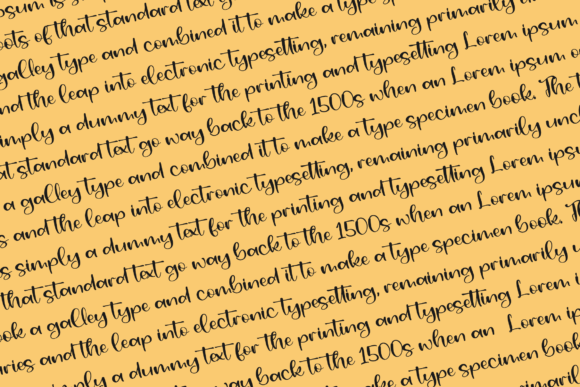 psum is
oots of that standard text
galley type and combined it to make a type
and the leap into electronic typesetting, remaining primarily
simply a dummy text for the printing and typesetting Lorem ipsum
at standard text go way back to the 1500s when an Lorem ipsum
a galley type and combined it to make a type specimen book. The
s and the leap into electronic typesetting, remaining primarily unc
s simply a dummy text for the printing and typesetting Lorem ipsu
that standard text go way back to the 1500s when an Lorem ipsum
ook a galley type and combined it to make a type specimen book. Th
aries and the leap into electronic typesetting, remaining primarily u
simply a dummy text for the printing and typesetting Lorem
text go way back to the 1500s when an Lorem ip
make a type specimen book